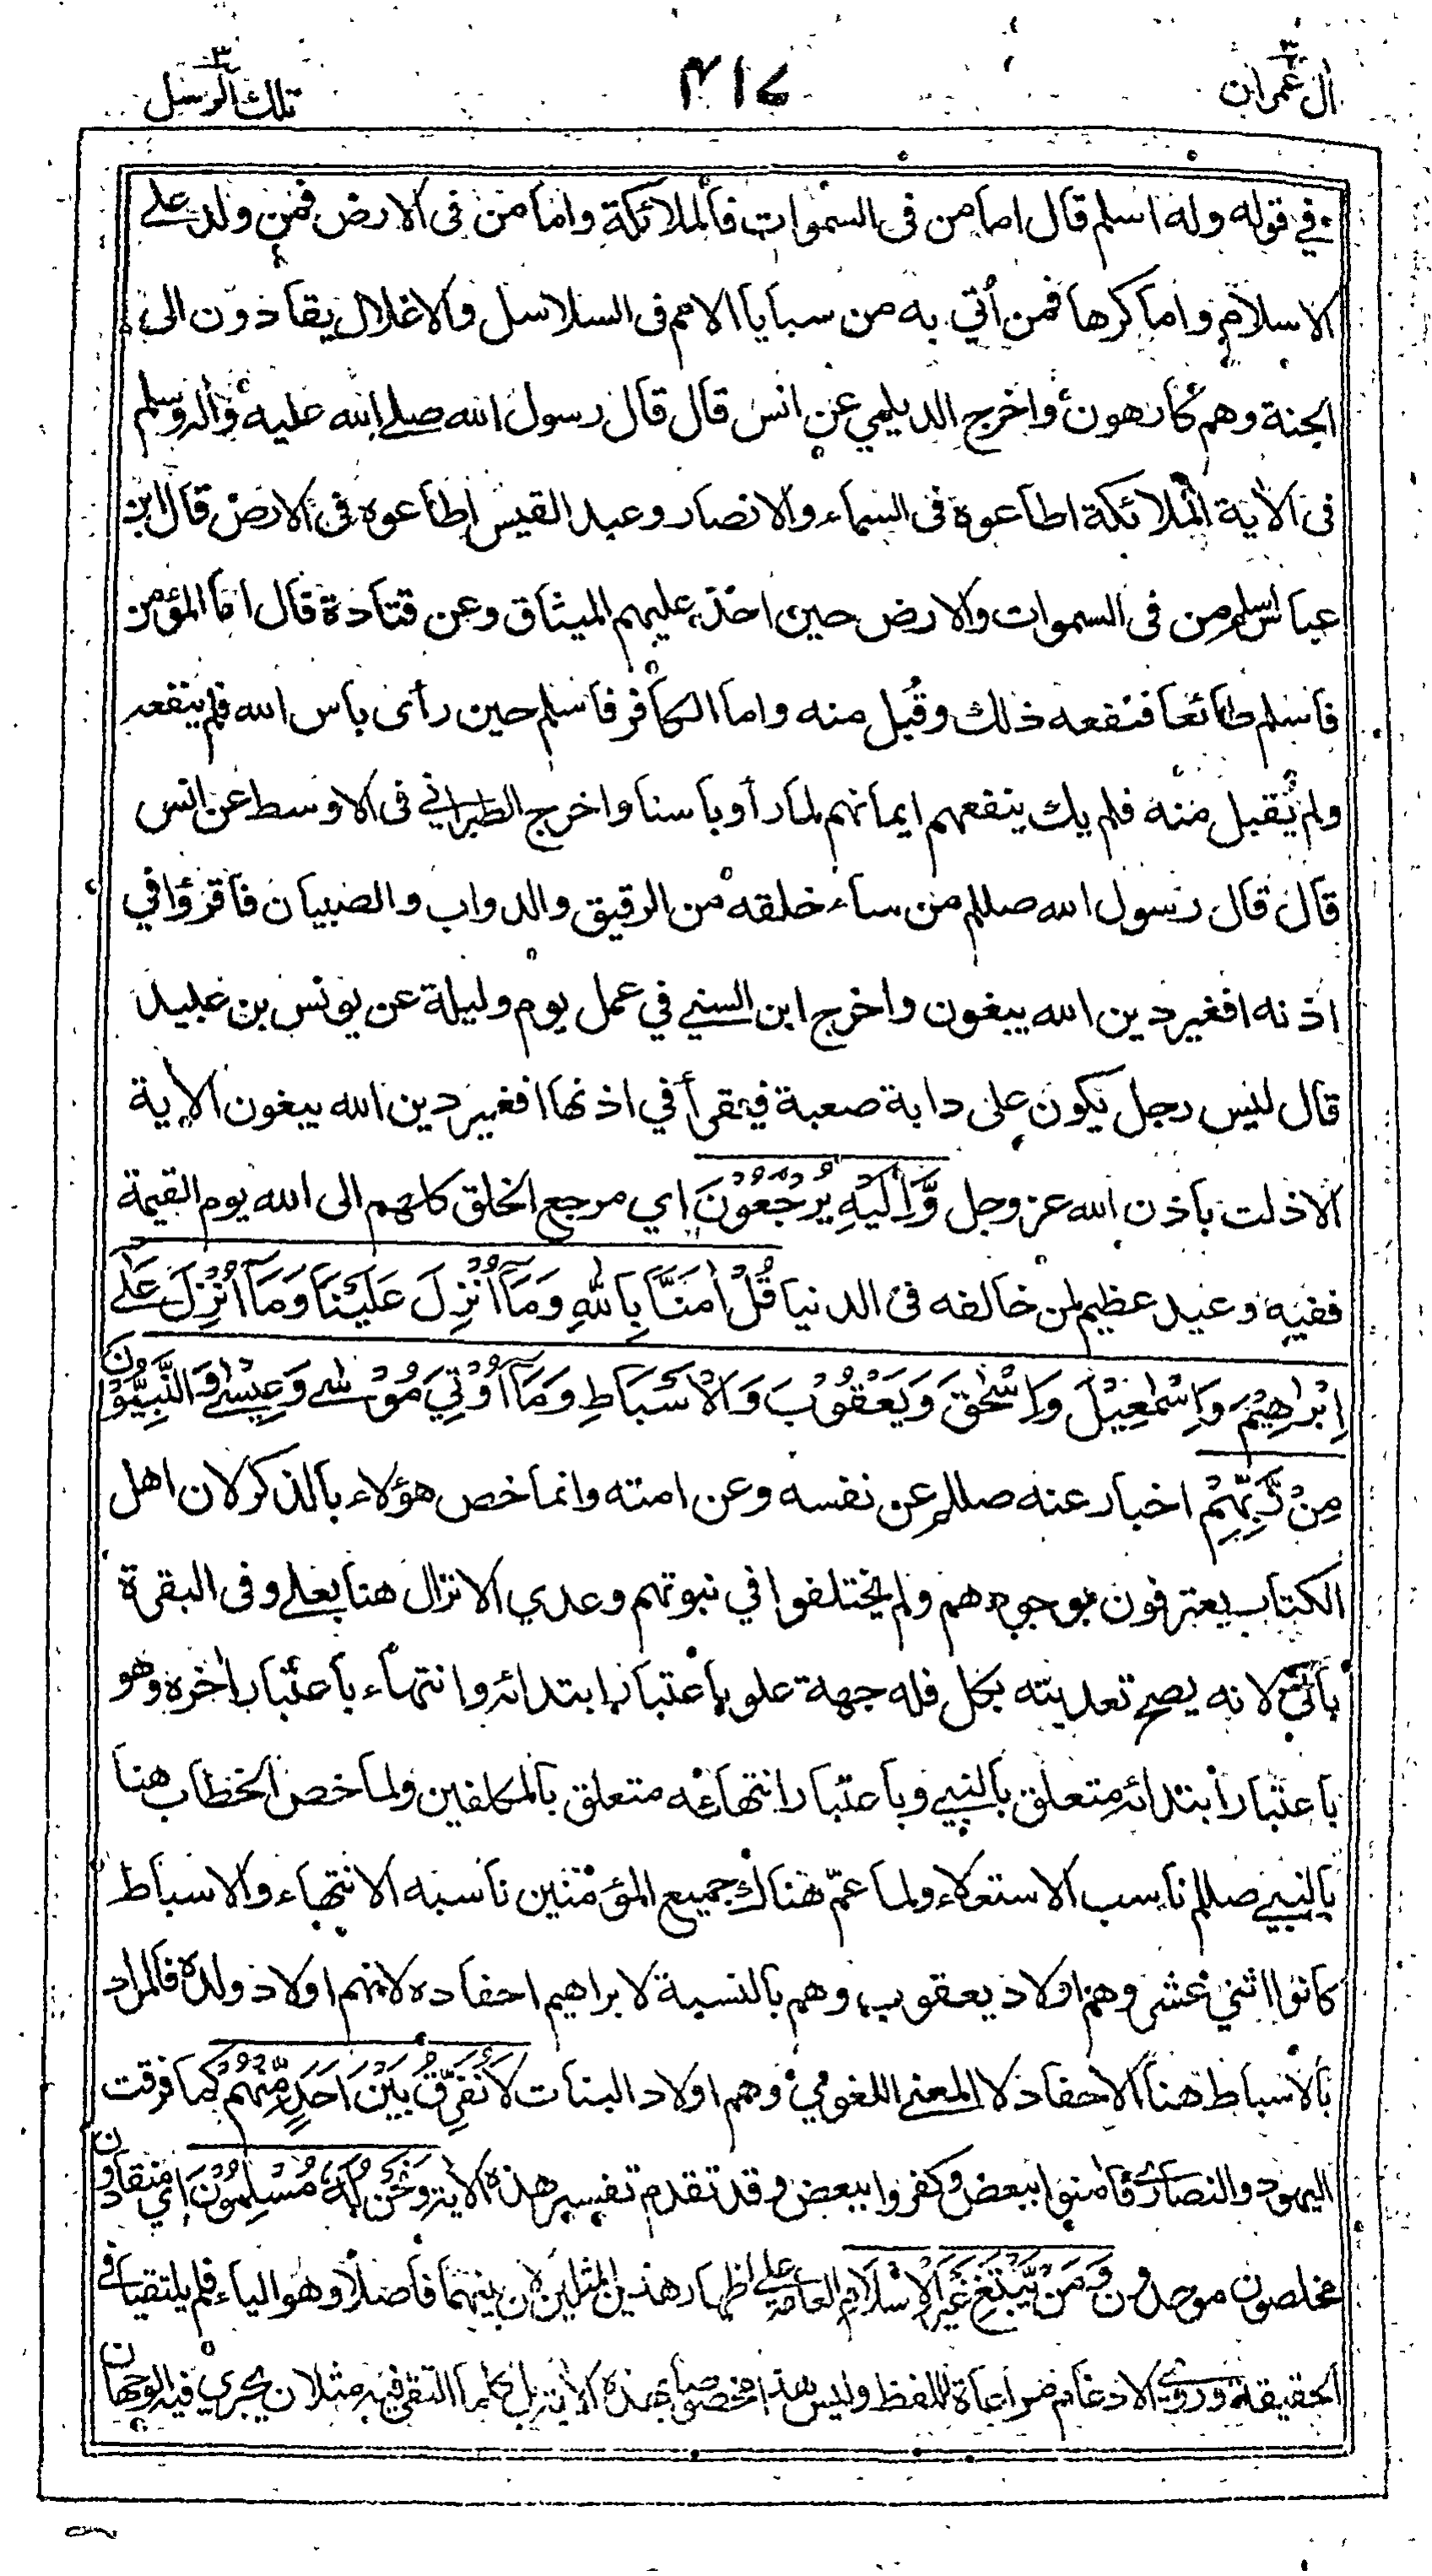 اٰل عمران ٣
٤١٧
تلك الرسل ٣
في قوله وله اسلم قال اما من فى السمٰوات فالملائكة واما من فى الارض فمن ولد على
الاسلام واما كرها فمن أُتي به من سبايا الامم فى السلاسل والاغلال يقادون الى
الجنة وهم كارهون واخرج الديلمي عن انس قال قال رسول الله صلى الله عليه واٰله وسلم
فى الاٰية الملائكة اطاعوه فى السماء والانصار وعبد القيس اطاعوه فى الارض قال ابن
عباس اسلم من فى السموات والارض حين اخذ عليهم الميثاق وعن قتادة قال اما المؤمن
فاسلم طائعا فنفعه ذلك وقُبل منه واما الكافر فاسلم حين رأى بأس الله فلم ينفعه
ولم يُقبل منه فلم يك ينفعهم ايمانهم لما رأوبأسنا واخرج الطبراني فى الاوسط عن انس
قال قال رسول الله صللم من ساء خلقه من الرقيق والدواب والصبيان فاقرؤا في
اذنه افغير دين الله يبغون واخرج ابن السني في عمل يوم وليلة عن يونس بن عبيد
قال ليس رجل يكون على دابة صعبة فيقرأ في اذنها افغير دين الله يبغون الاٰية
الا ذلت باذن الله عز وجل وَّاِلَيْهِ يُرْجَعُوْنَ اي مرجع الخلق كلهم الى الله يوم القيمة
ففيه وعيد عظيم لمن خالفه فى الدنيا قُلْ اٰمَنَّا بِاللّٰهِ وَمَآ اُنْزِلَ عَلَيْنَا وَمَآ اُنْزِلَ عَلٰى
اِبْرٰهِيْمَ وَاِسْمٰعِيْلَ وَاِسْحٰقَ وَيَعْقُوْبَ وَالْاَسْبَاطِ وَمَآ اُوْتِيَ مُوْسٰى وَعِيْسٰى وَالنَّبِيُّوْنَ
مِنْ رَّبِّهِمْ اخبار عنه صللم عن نفسه وعن امته وانما خص هؤلاء بالذكر لان اهل
الكتاب يعترفون بوجودهم ولم يختلفوا في نبوتهم وعدي الانزال هنا بعلى وفى البقرة
بالى لانه يصح تعديته بكل فله جهة علو باعتبار ابتدائه وانتهاء باعتبار اٰخره وهو
باعتبار ابتدائه متعلق بالنبي وباعتبار انتهائه متعلق بالمكلفين ولما خص الخطاب هنا
بالنبي صللم ناسب الاستعلاء ولما عمّ هناك جميع المؤمنين ناسبه الانتهاء والاسباط
كانوا اثني عشر وهم اولاد يعقوب، وهم بالنسبة لابراهيم احفاده لانهم اولاد ولده فالمراد
بالاسباط هنا الاحفاد لا المعنى اللغوي وهم اولاد البنات لَا نُفَرِّقُ بَيْنَ اَحَدٍ مِّنْهُمْ كما فرقت
اليهود والنصارى فاٰمنوا ببعض وكفروا ببعض وقد تقدم تفسير هذه الاٰية وَنَحْنُ لَهٗ مُسْلِمُوْنَ اي منقادون
مخلصون موحدون وَمَنْ يَّبْتَغِ غَيْرَ الْاِسْلَامِ العامة على اظهار هذين المثلين لان بينهما فاصلا وهو الياء فلم يلتقيا في
الحقيقة وروي الادغام مراعاة للفظ وليس هذا مخصوصا بهذه الاٰية بل كلما التقى فيه مثلان يجري فيه الوجهان